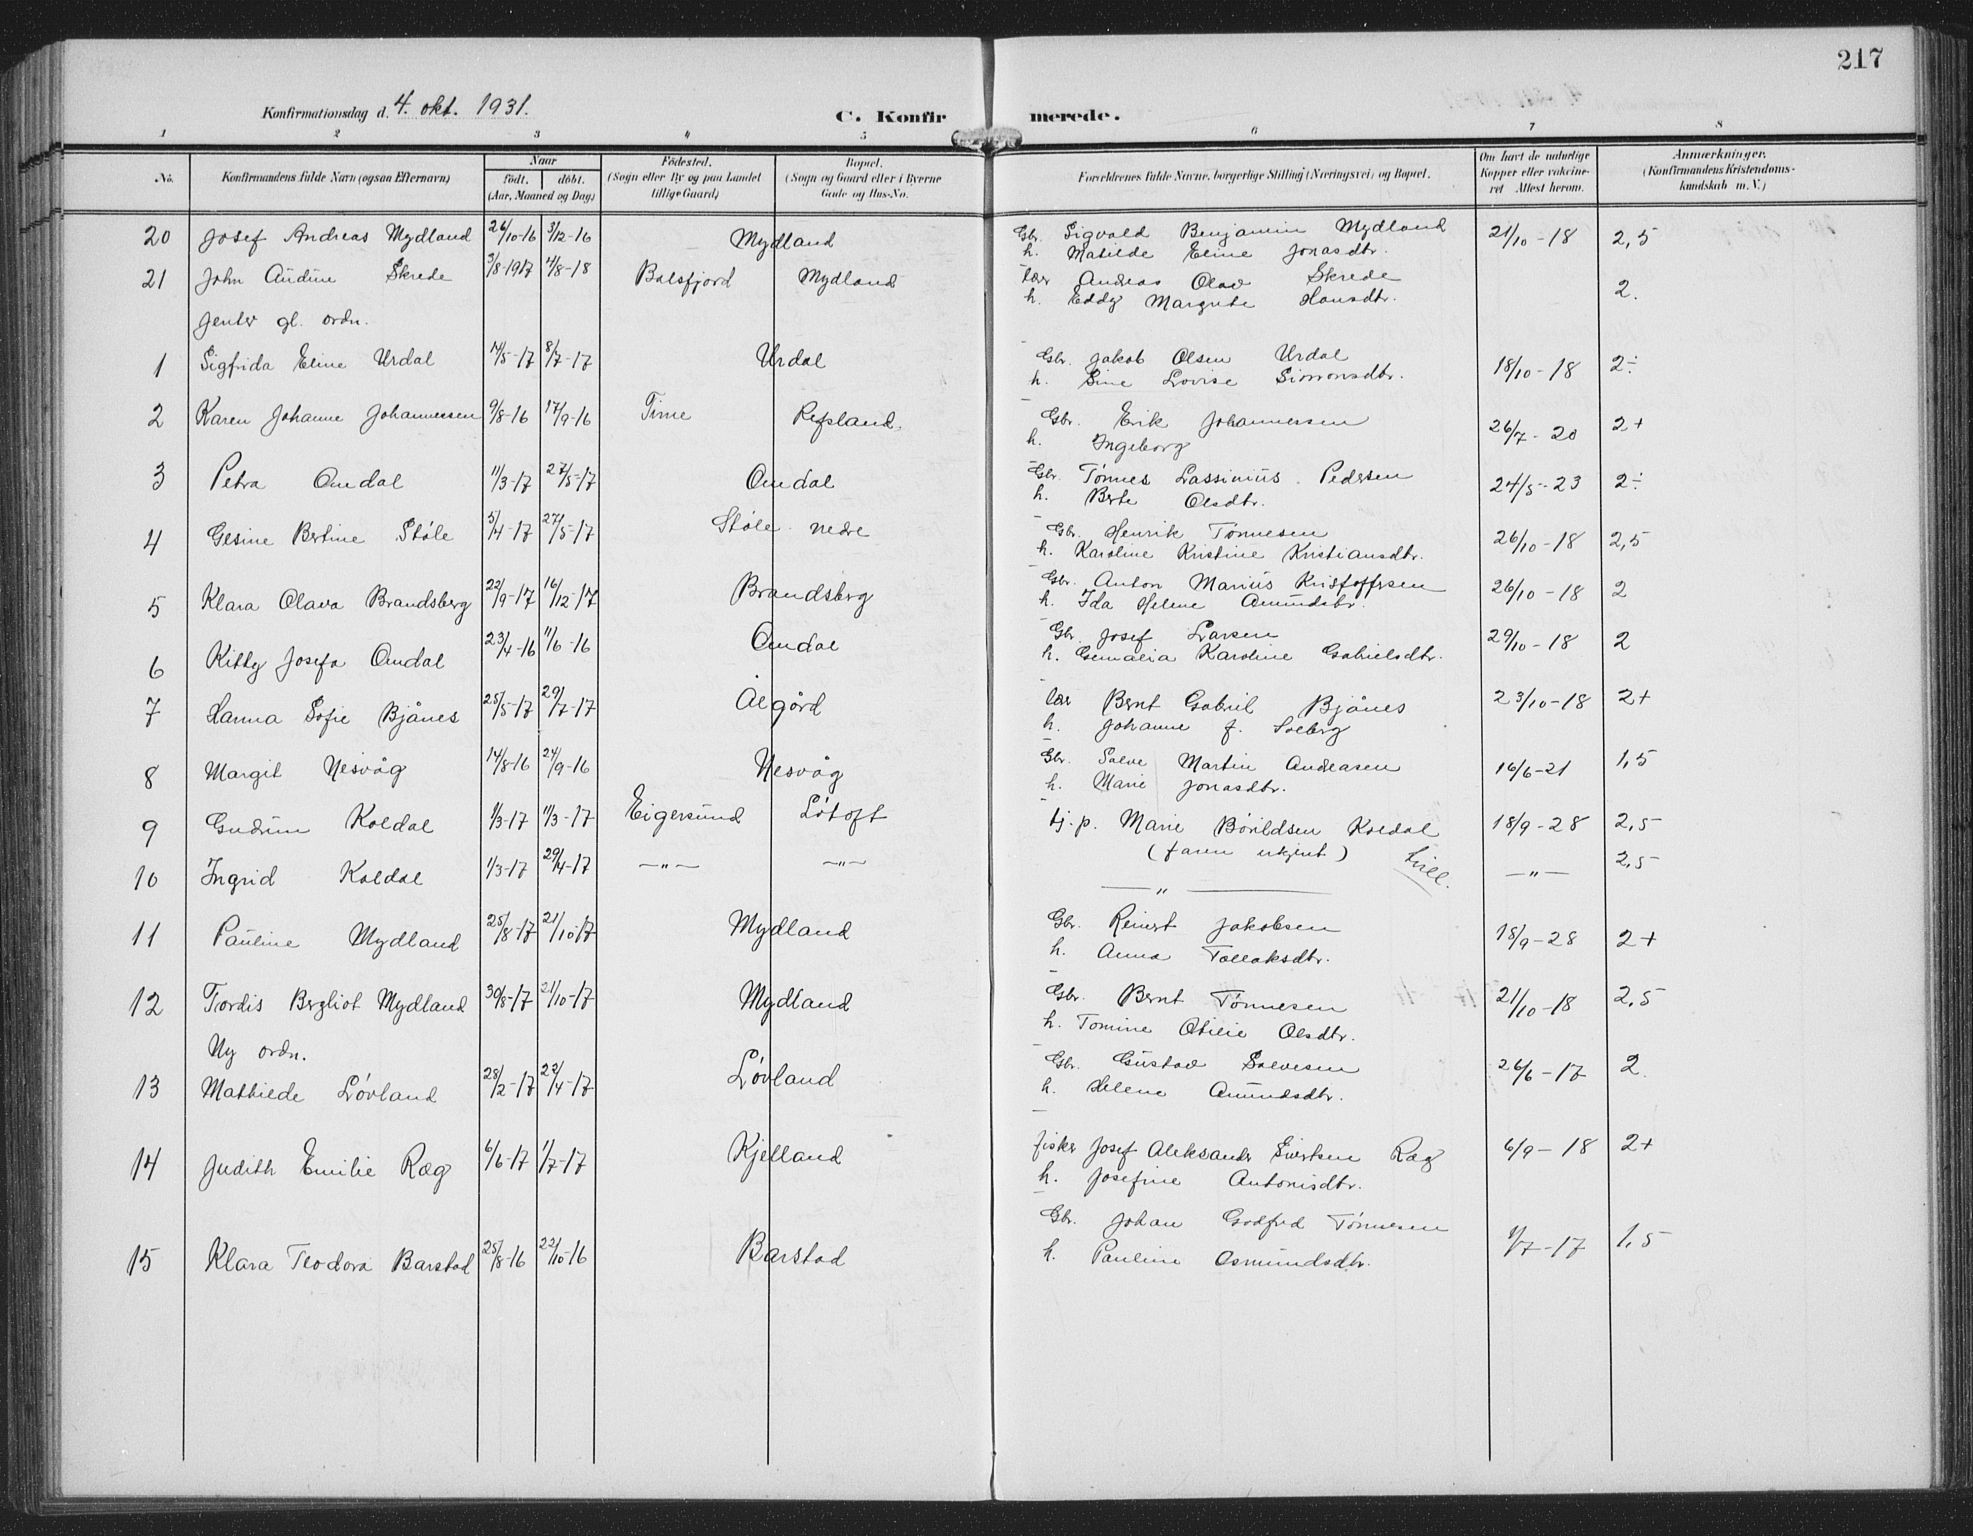 217
Konfirmationsdag d. 4. okt. 1931. C. Konfirmerede.
1 2 3 4 5 6 7 8
No. Konfirmandens fulde Navn (ogsaa Efternavn) Naar födt. döbt. (Aar, Maaned og Dag) Födested. (Sogn eller By og paa Landet tillige Gaard) Bopæl. (Sogn og Gaard eller i Byerne Gade og Hus-No. Forældrenes fulde Navne, borgerlige Stilling (Næringsvei) og Bopæl. Om havt de naturlige Kopper eller vakcineret Attest herom. Anmærkninger. (Konfirmandens Kristendomskundskab m. V.)
20 Josef Andreas Mydland 26/10-16 3/12-16 Mydland Gbr. Sigvald Benjamin Mydland 21/10-18 2,5
h. Matilde Eline Jonasdtr.
21 John Audun Skrede 3/8-1917 4/8-18 Balsfjord Mydland lær Andreas Olav Skrede 2.
h. Eddy Margrete Hansdtr.
Jenter gl. ordn.
1 Sigfrida Eline Urdal 7/5-17 8/7-17 Urdal Gbr. Jakob Olsen Urdal 18/10-18 2÷
h. Sine Lovise Simonsdtr.
2 Karen Johanne Johannessen 9/8-16 17/9-16 Time Refsland. Gbr. Erik Johannessen 26/7-20 2+
h. Ingeborg
3 Petra Omdal 11/3-17 27/5-17 Omdal Gbr. Tønnes Lassinius Pedersen 24/5-23 2÷
h. Berte Olsdtr.
4 Gesine Bertine Støle 5/4-17 27/5-17 Støle nedre Gbr. Henrik Tønnesen 26/10-18 2,5
h. Karoline Kristine Kristiansdtr.
5 Klara Olava Brandsberg 22/9-17 16/12-17 Brandsberg Gbr. Anton Marius Kristoffersen 26/10-18 2
h. Ida Helene Amundsdtr.
6 Kitty Josefa Omdal 23/4-16 11/6-16 Omdal Gbr. Josef Larsen 29/10-18 2
h. Gemalia Karoline Gabrielsdtr.
7 Hanna Sofie Bjånes 25/5-17 29/7-17 Ålgård lær Bernt Gabriel Bjånes 23/10-18 2+
h. Johanne f. Solberg
8 Margit Nesvåg 14/8-16 24/9-16 Nesvåg Gbr. Salve Martin Andreasen 16/6-21 1,5
h. Marie Jonasdtr.
9 Gudrun Koldal 1/3-17 11/3-17 Eigersund Løtoft tj.p. Marie Bårildsen Koldal 18/9-28 2,5
(faren ukjent)
10 Ingrid Koldal 1/3-17 29/4-17 —"— —"— —"— tvill. —"— 2,5
11 Pauline Mydland 25/8-17 21/10-17 Mydland Gbr. Reinert Jakobsen 18/9-28 2+
h. Anna Tollaksdtr.
12 Tordis Bergliot Mydland 30/8-17 21/10-17 Mydland Gbr. Bernt Tønnesen 21/10-18 2,5
h. Tomine Otilie Olsdtr.
Ny ordn.
13 Mathilde Løvland 28/2-17 22/4-17 Løvland Gbr. Gustav Salvesen 26/6-17 2
h. Helene Amundsdtr.
14 Judith Emilie Ræg 6/6-17 1/7-17 Kjelland fisker Josef Aleksander Sivertsen Ræg 6/9-18 2+
h. Josefine Antonisdtr.
15 Klara Teodora Barstad 25/8-16 22/10-16 Barstad Gbr. Johan Godfred Tønnesen 4/7-17 1,5
h. Pauline Osmundsdtr.